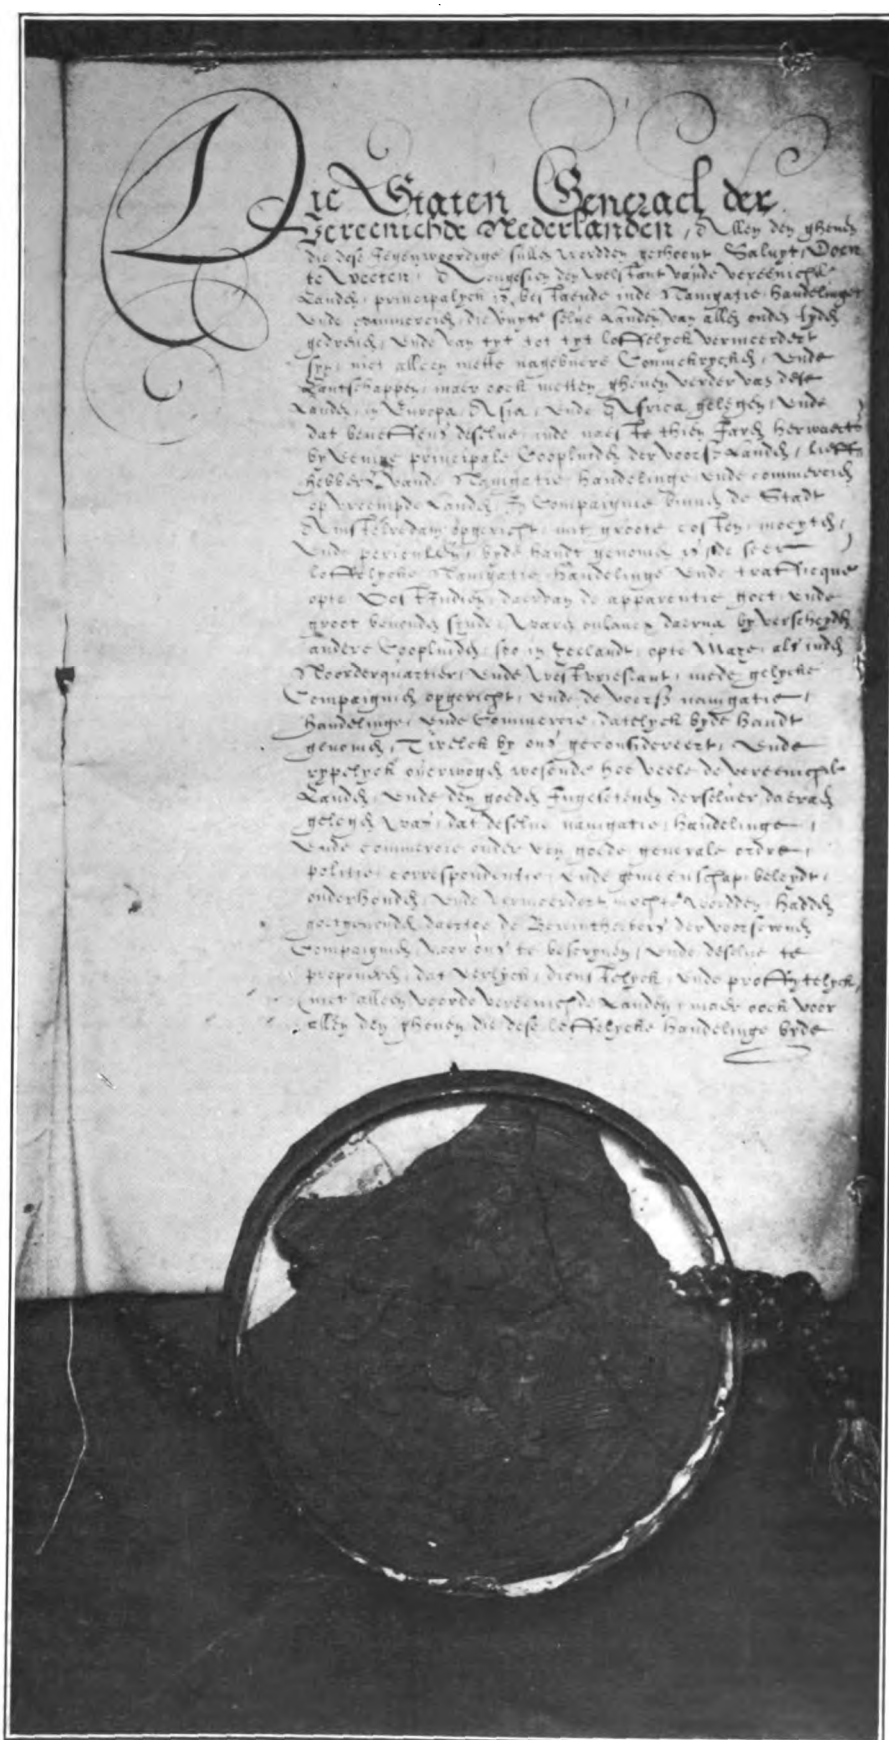 Die Staten Generael der
Vereenichde Nederlanden, Allen den ghenen
die dese Jegenwoordige sullen werdden gethoont Saluyt, Doen
te weeten, Alsoo gesien den welstant vande vereenichde
Landen, principalycken is bestaende inde Navigatie, handelinge
ende commercien, die vuyte selve Landen van allen ouden tyden
gedreven, ende van tyt tot tyt loffelyck vermeerdert
syn, niet alleen mette nagebuere Conincrycken, ende
Lantschappen, maer oock metten ghenen verder van dese
Landen, in Europa, Asia, ende Africa gelegen, ende
dat beneffens deselve, inde naeste thien Jaren herwaerts
by eenige principale Coopluiden der voorsz Landen, lieff-
hebbers vande Navigatie, handelinge, ende commercien
op vreempde Landen, In Compaignie binnen de Stadt
Amstelredam opgericht, met groote costen, moeyten,
ende periculen, byde handt genomen is, de seer
loffelycke Navigatie, handelinge ende trafficque
opte Oost Indien, daervan de apparentie goet, ende
groot bevonden synde, waren onlancx daerna by verscheyden
andere Coopluiden, soo in Zeelandt, opte Maze, als inden
Noorderquartier, ende Westvrieslant, mede gelycke
Compaignien opgericht, ende de voorsz navigatie,
handelinge, ende Commercie, datelyck byde handt
genomen, Twelck by ons geconsidereert, ende
rypelyck overwogen wesende hoe veele de vereenichde
Landen, ende den goeden Ingesetenen derselver daeraen
gelegen was, dat deselve navigatie, handelinge,
ende commercie onder een goede generale ordre,
politie, correspondentie, ende gemeenschap beleydt,
onderhouden, ende vermeerdert mochte werdden, hadden
goetgevonden daertoe de Bewinthebbers der voorseide
Compaignien, voor ons te bescryven, ende deselve te
proponeren, dat eerlyck, dienstelyck, ende proffytelyck,
niet alleen voorde vereenichde Landen, maer oock voor
allen den ghenen die dese loffelycke handelinge byde